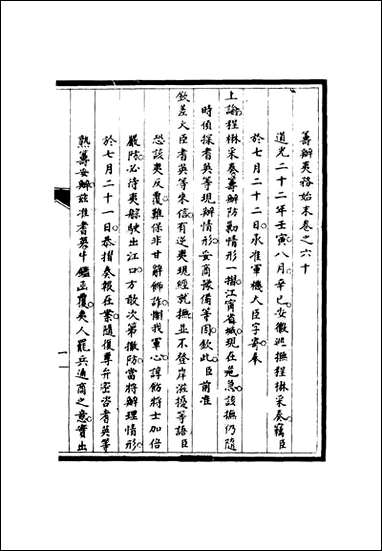 籌辦夷務始末卷之六十
道光二十二年壬寅八月辛巳安徽巡撫程楙采奏竊臣
於七月二十二日承准軍機大臣字寄奉
上諭程楙采奏籌辦防勦情形一摺江寧省城現在危急該撫仍隨
時偵探耆英等現辦情形妥商豫備等因欽此臣前准
欽差大臣耆英等來信有逆夷現經就撫並不登岸滋擾等語臣
恐該夷反覆難保非甘解師詐懈我軍心諄飭將士加倍
嚴防必待夷艘駛出江口方敢次第撤防當將辦理情形
於七月二十一日恭摺奏報在案隨復尊弁密咨耆英等
熟籌妥辦茲准耆英牛鑑函覆夷人罷兵通商之意實出
一